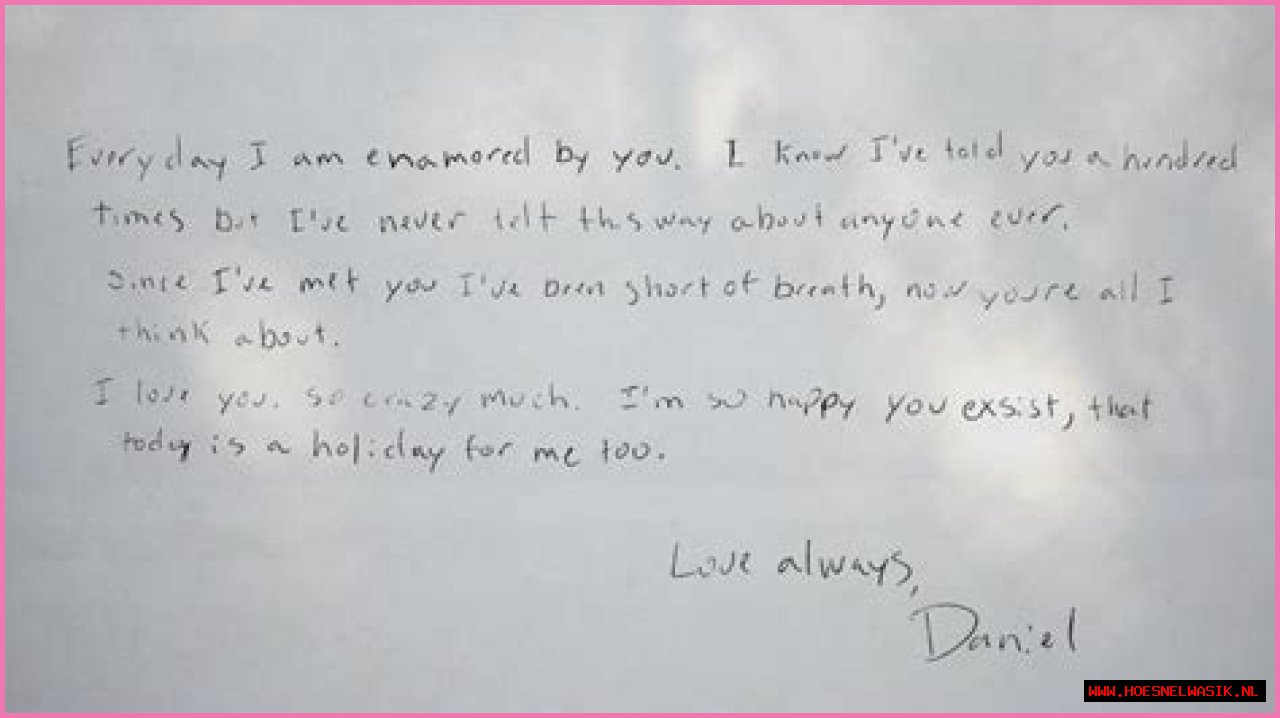 Everyday I am enamored by you. I know I've told you a hundred
times but I've never felt this way about anyone ever.
Since I've met you I've been short of breath, now youre all I
think about.
I love you. so crazy much. I'm so happy you exsist, that
today is a holiday for me too.
Love always,
Daniel
WWW.HOESNELWASIK.NL